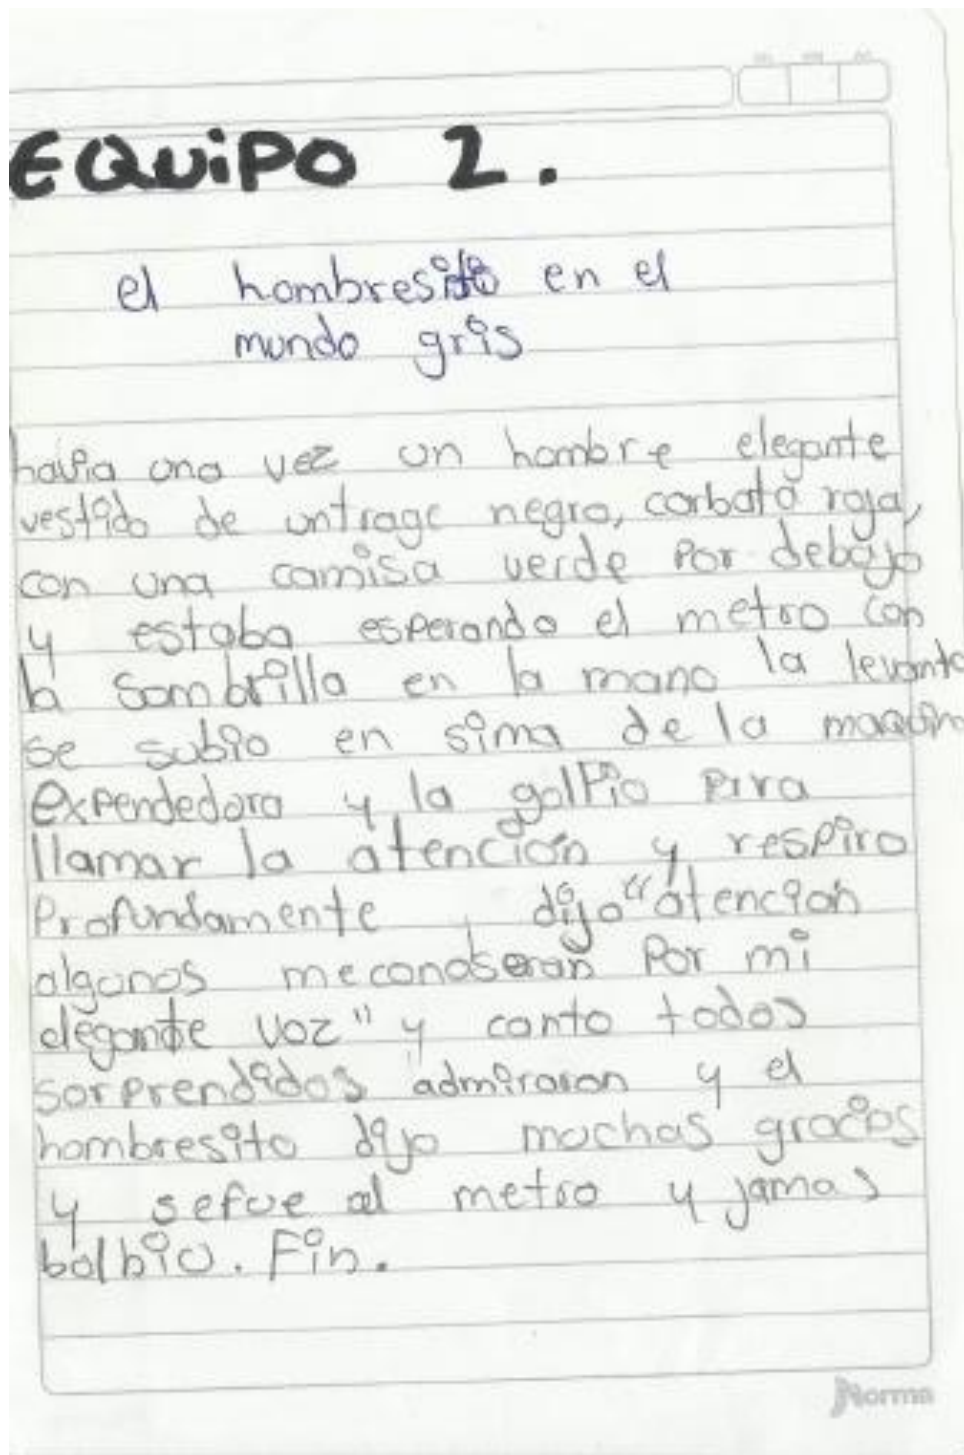 EQUIPO 2.
el hombresito en el
mundo gris
havia una vez un hombre elegante
vestido de untrage negro, corbata roja,
con una camisa verde por debajo
y estaba esperando el metro con
la sombrilla en la mano la levanto
se subio en sima de la maquin
expendedora y la golpio para
llamar la atención y respiro
Profundamente, dijo "atencion
algunos meconoseran Por mi
elegante voz" y canto todos
sorprendidos admiraron y el
hombresito dijo muchas gracias
y sefue al metro y jamas
bolbio. Fin.
Norma